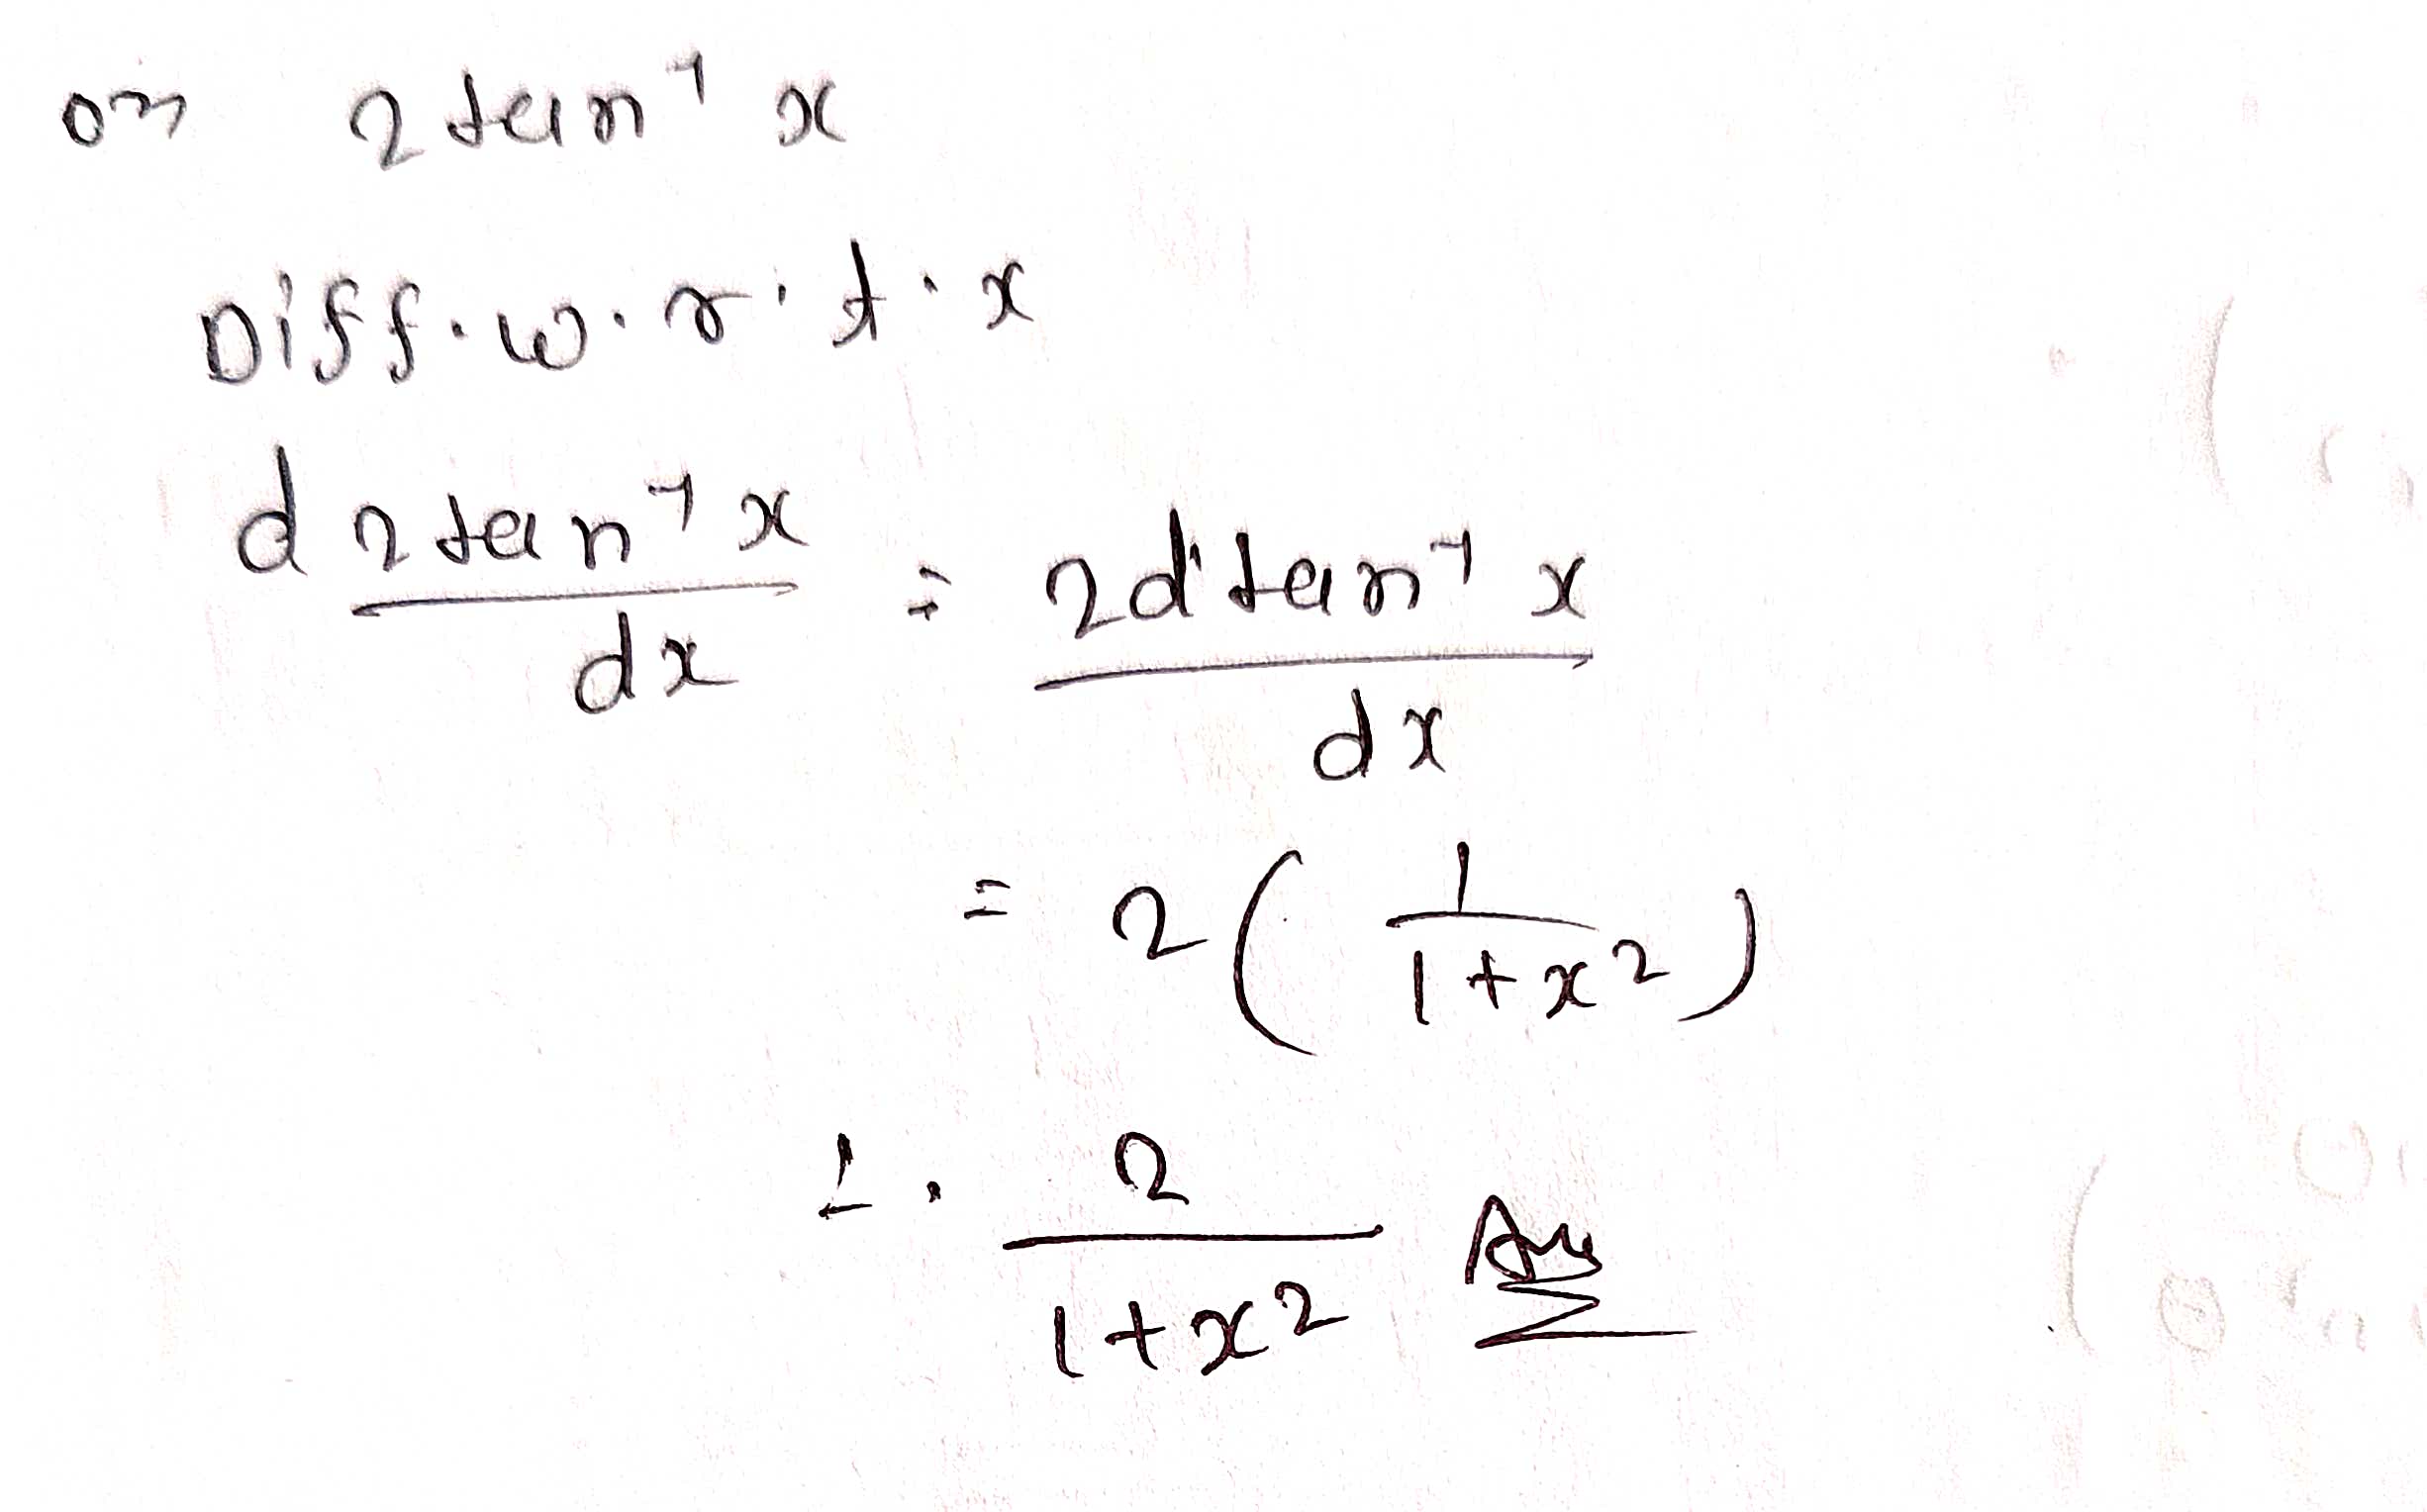 on 2 tan⁻¹ x
Diff. w. r. t. x
d 2 tan⁻¹ x / dx = 2 d tan⁻¹ x / dx
= 2 ( 1 / 1 + x² )
2 / 1 + x² Ans